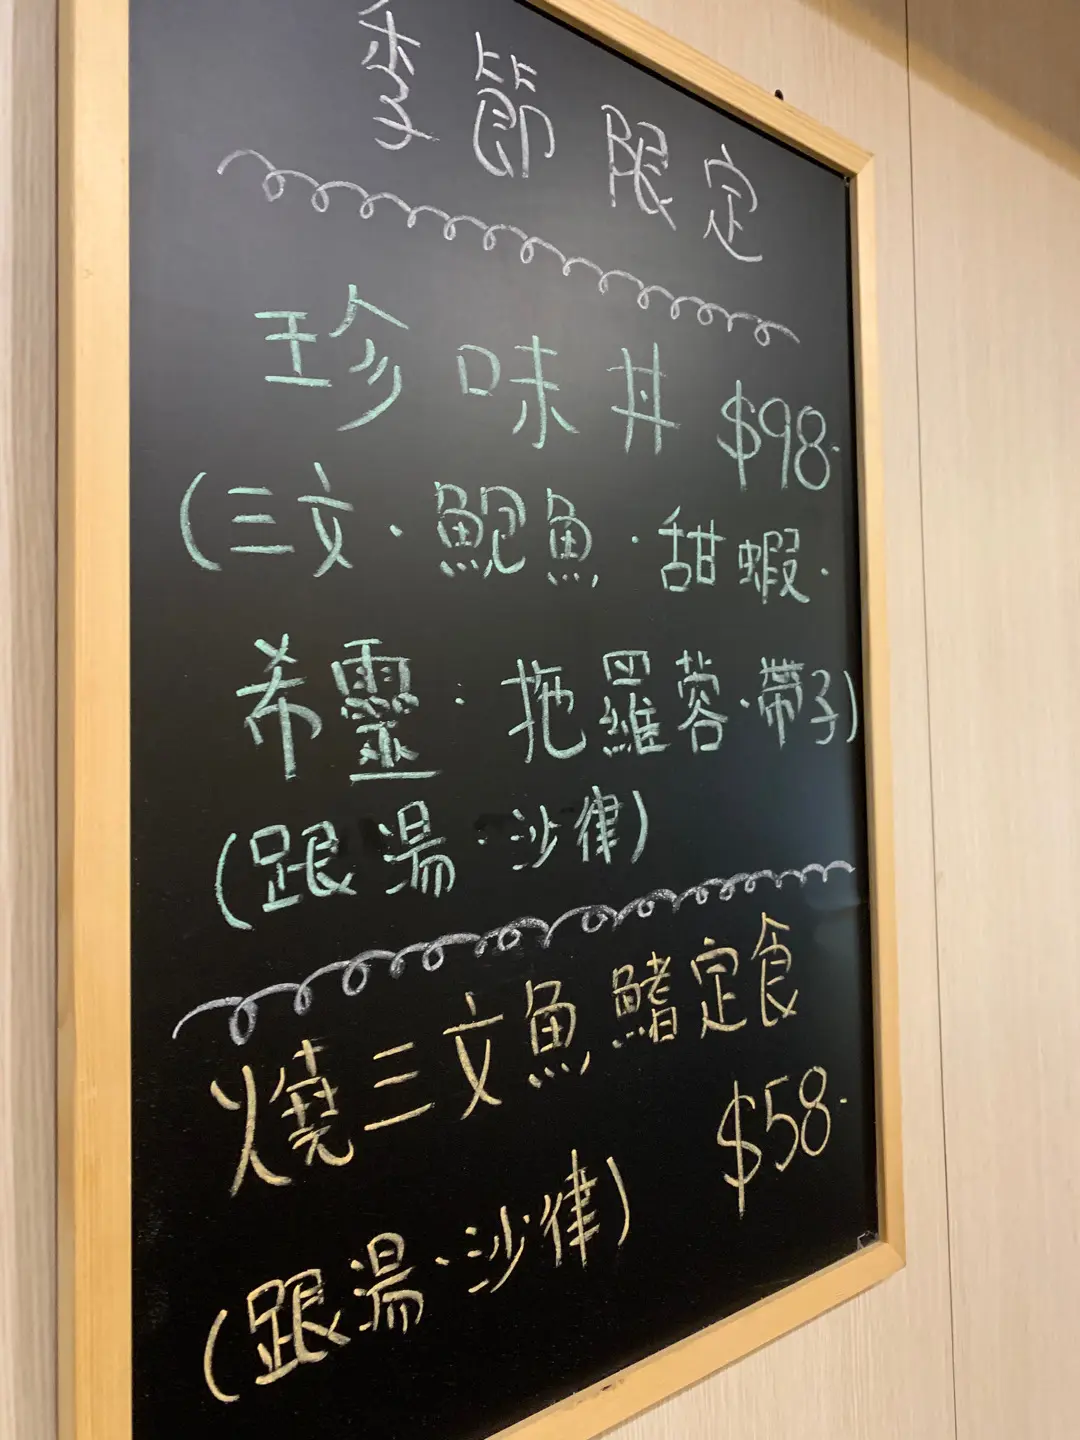 季節限定
珍味丼 $98.
(三文・鮑魚・甜蝦・
希靈・拖羅蓉・帶子)
(跟湯・沙律)
燒三文魚鰭定食
$58.
(跟湯・沙律)